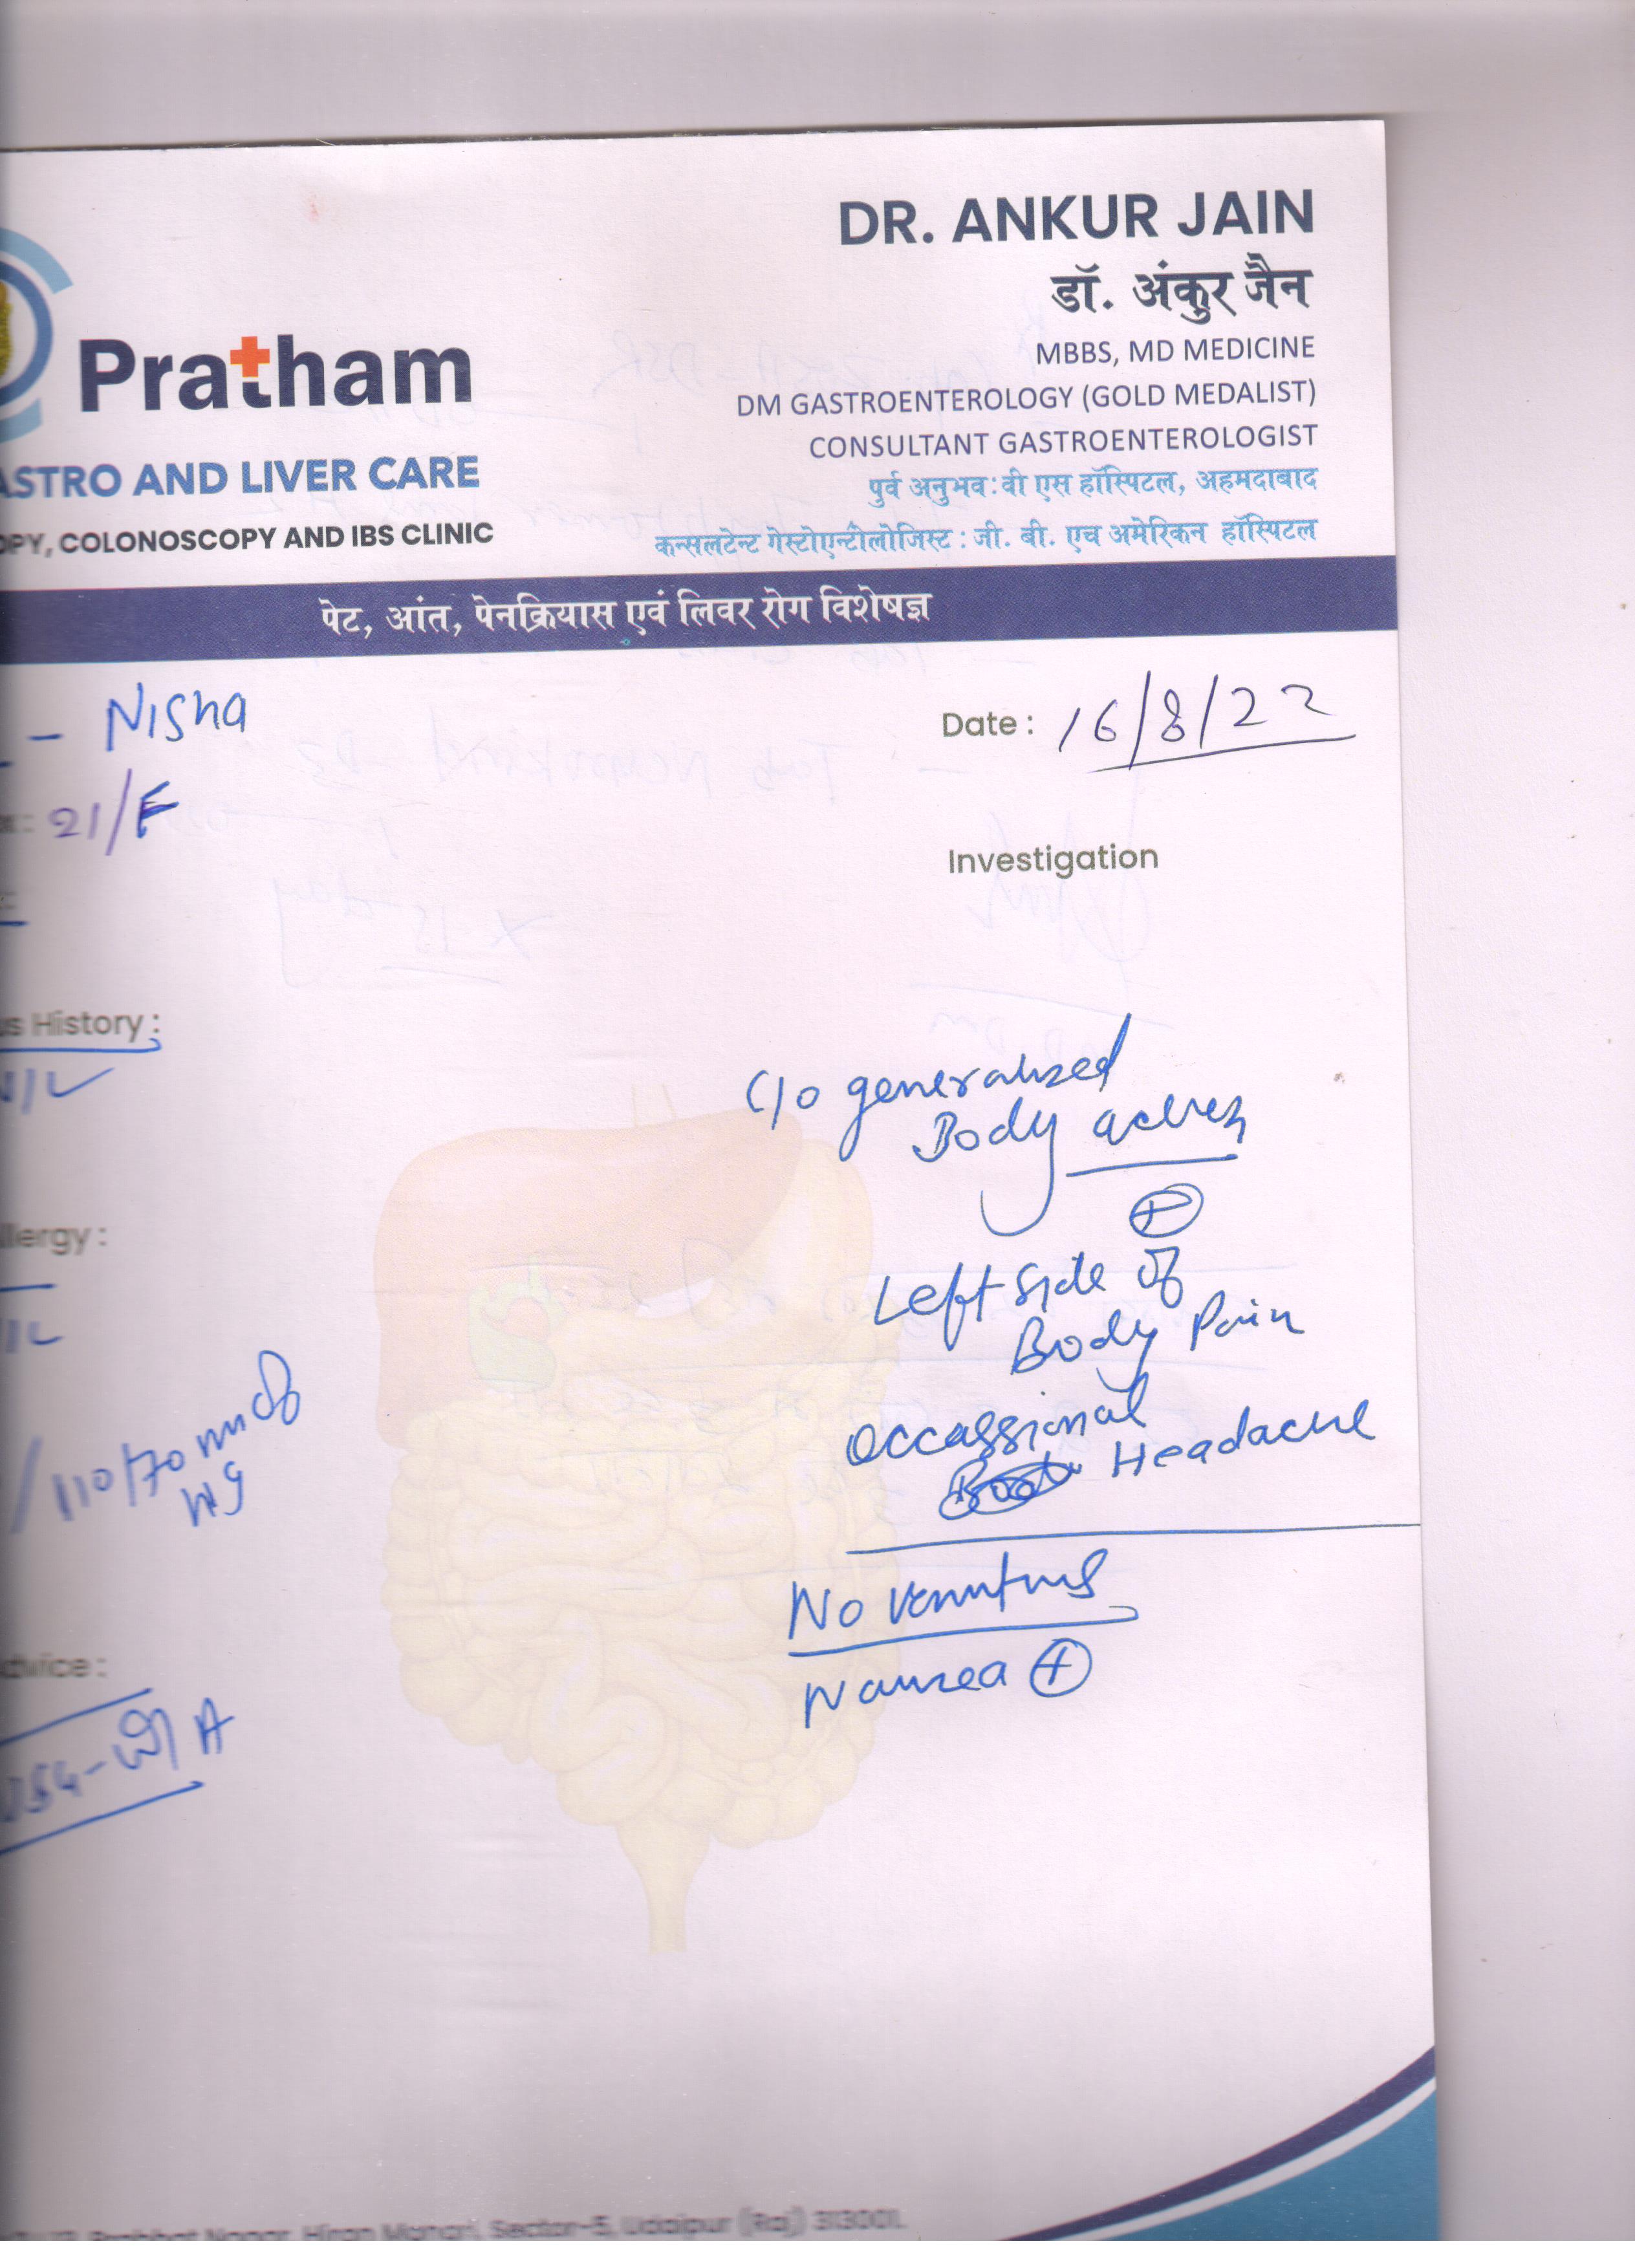 DR. ANKUR JAIN
डॉ. अंकुर जैन
MBBS, MD MEDICINE
DM GASTROENTEROLOGY (GOLD MEDALIST)
CONSULTANT GASTROENTEROLOGIST
पुर्व अनुभव : वी एस हॉस्पिटल, अहमदाबाद
कन्सलटेन्ट गेस्टोएन्टीलोजिस्ट : जी. बी. एच अमेरिकन हॉस्पिटल
Pratham
ASTRO AND LIVER CARE
OPY, COLONOSCOPY AND IBS CLINIC
पेट, आंत, पेनक्रियास एवं लिवर रोग विशेषज्ञ
- Nisha
Date : 16/8/22
21/F
Investigation
us History :
C/o generalized
Body aches
⊕
Left side of
Body Pain
occassional
Headache
llergy :
110/70 mm of
Hg
No vomiting
Nausea ⊕
dvice :
Prabhat Nagar, Hiran Magari, Sector-5, Udaipur (Raj) 313001.